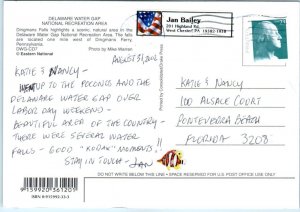 DELAWARE WATER GAP
NATIONAL RECREATION AREA
Dingmans Falls highlights a scenic natural area in the
Delaware Water Gap National Recreation Area. The falls
are located one mile west of Dingmans Ferry,
Pennsylvania.
DWG-CD7 Photo by Mike Warren
© Eastern National
AUGUST 31, 2002
KATIE & NANCY -
WENT UP TO THE POCONOS AND THE
DELAWARE WATER GAP OVER
LABOR DAY WEEKEND -
BEAUTIFUL AREA OF THE COUNTRY -
THERE WERE SEVERAL WATER
FALLS - GOOD "KODAK" MOMENTS!!
STAY IN TOUCH - JAN
9 159920 561209
ISBN
Jan Bailey
201 Highland Rd.
West Chester, PA 19382-1828
KATIE & NANCY
100 ALSACE COURT
PONTEVERRA BEACH
FLORIDA 3208
DO NOT WRITE BELOW THIS LINE - THIS SPACE RESERVED FOR